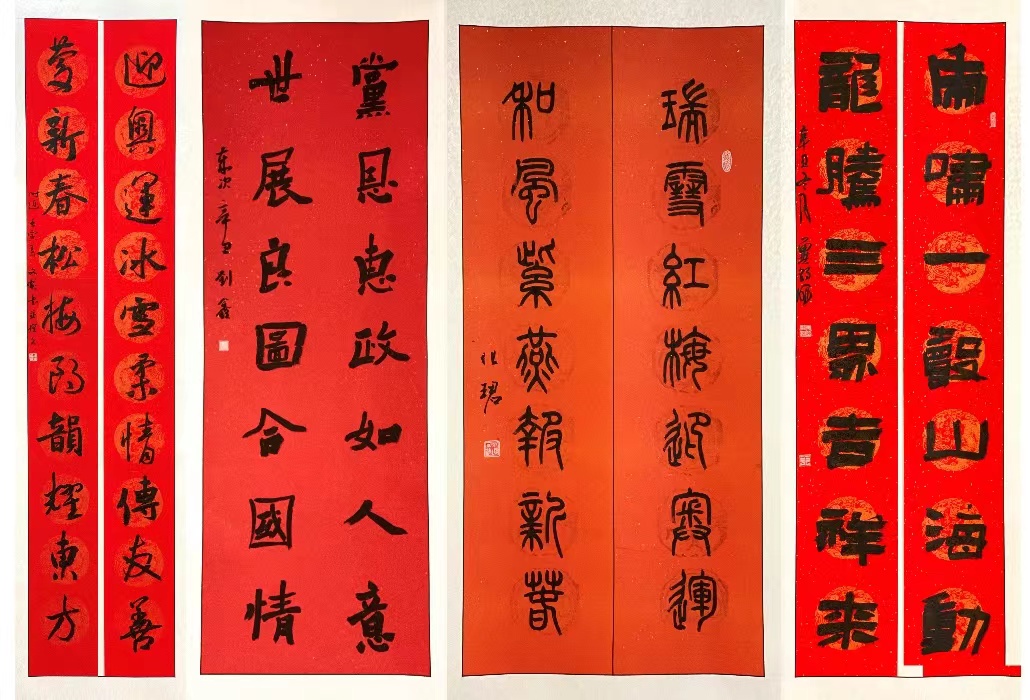 虎嘯一聲山海動
龍騰三界吉祥来
辛丑十月
瑞雪紅梅迎奧運
和風紫燕報新春
祖珺
黨恩惠政如人意
世展良圖合國情
歲次辛丑劉鑫
迎奧運冰雪柔情傳友善
夢新春松梅朗韻耀東方